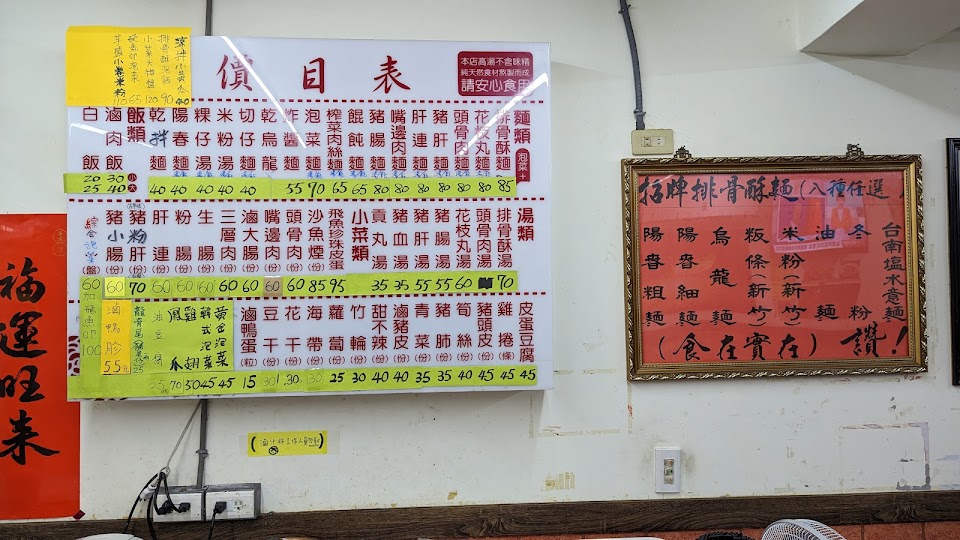 價目表
本店高湯不含味精
純天然食材熬製而成
請安心食用
麵類
泡菜+
排骨酥麵 85
花枝丸麵 80
頭骨肉麵 80
豬肝麵 80
肝連麵 80
嘴邊肉麵 80
豬腸麵 80
餛飩麵 65
榨菜肉絲麵 65
泡菜麵 70
炸醬麵 55
乾烏龍
切仔麵 40
米粉湯 40
粿仔湯 40
陽春麵 40
乾拌麵 40
飯類
小 大
滷肉飯 30 40
白飯 20 25
湯類
排骨酥湯 70
頭骨肉湯
花枝丸湯 60
豬腸湯 55
豬肝湯 55
豬血湯 35
貢丸湯 35
小菜類
飛魚珍珠皮蛋 95
沙魚煙(份) 85
頭骨肉(份) 60
嘴邊肉(份) 60
滷大腸(份) 60
三層肉(份) 60
生腸(份) 60
粉腸(份) 60
肝連(份) 60
豬粉肝(份) 70
豬小肚(份) 60
(盤) 60
皮蛋豆腐 45
雞捲(條) 45
豬頭皮 45
筍絲 40
豬肺 35
青菜 35
滷豬皮 40
甜不辣 40
竹輪 30
蘿蔔 25
海帶 30
花干 30
豆干 30
滷鴨蛋(粒) 15
黃金泡菜 45
韓式泡菜 45
雞翅 50
鳳爪 70
25
滷鴨胗 55元
加飛魚卵 100
涼拌 黃金 40
排骨酥湯 90
小菜大拼盤 120
65
芋頭小卷米粉 110
招牌排骨酥麵(八種任選)
台南塩水意麵
冬粉
油麵
米粉(新竹)
粄條(新竹)
烏龍麵
陽春細麵
陽春粗麵
(食在實在) 讚!
福運旺來